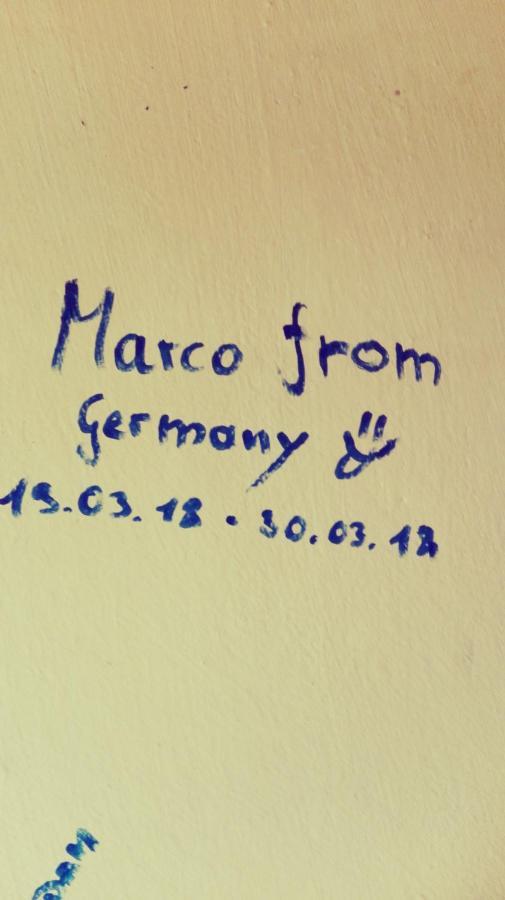 Marco from
Germany
19.03.18 - 30.03.18